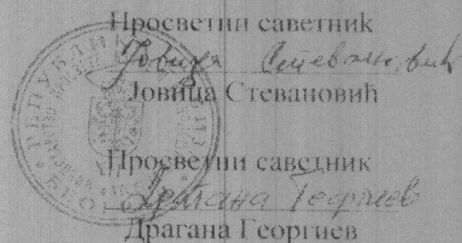 Просветни саветник
Јовица Стевановић
Јовица Стевановић
Просветни саветник
Драгана Георгиев
Драгана Георгиев